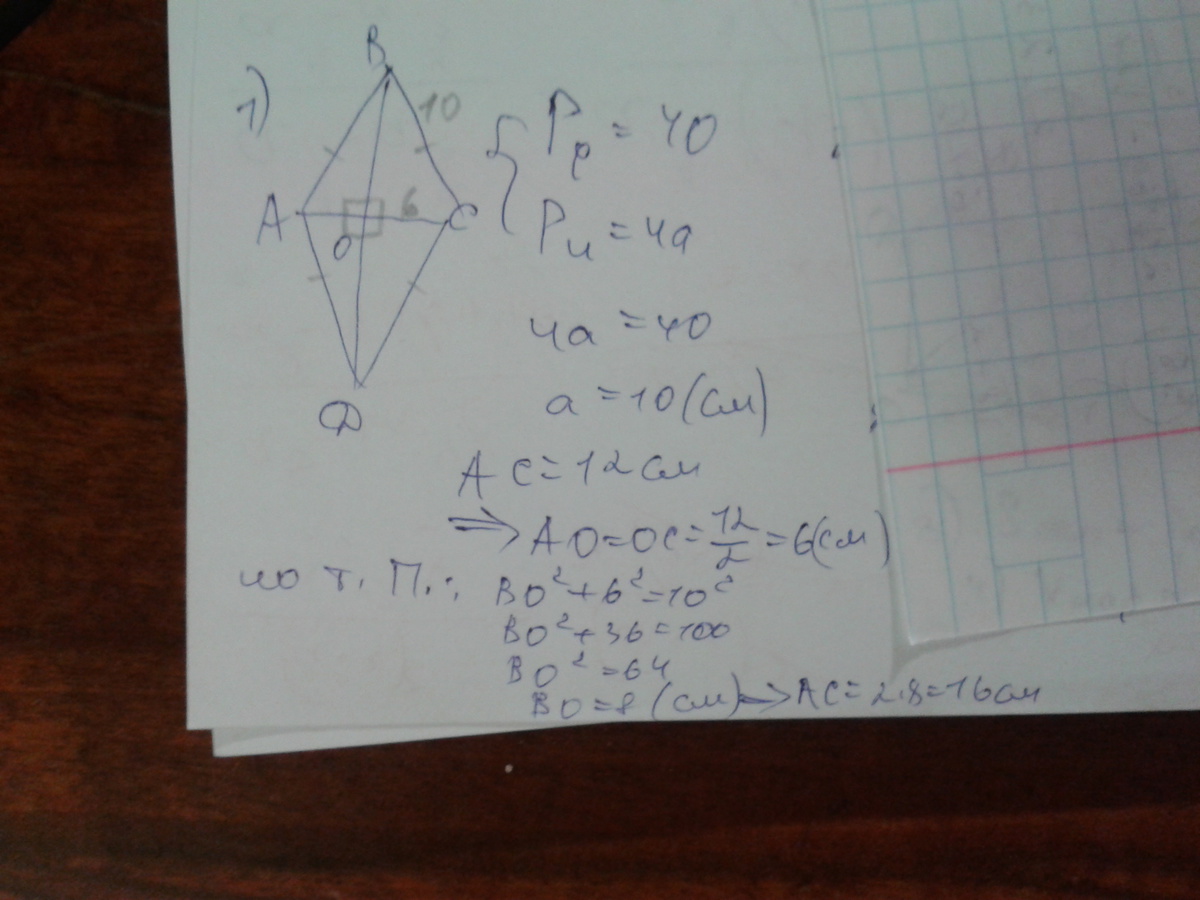 1)
B
10
A
6
C
O
D
{ Pр = 40
Pч = 4a
4a = 40
a = 10 (см)
AC = 12 см
⇒ AO = OC = 12/2 = 6 (см)
по т. П.:
BO² + 6² = 10²
BO² + 36 = 100
BO² = 64
BO = 8 (см) ⇒ AC = 2·8 = 16 см